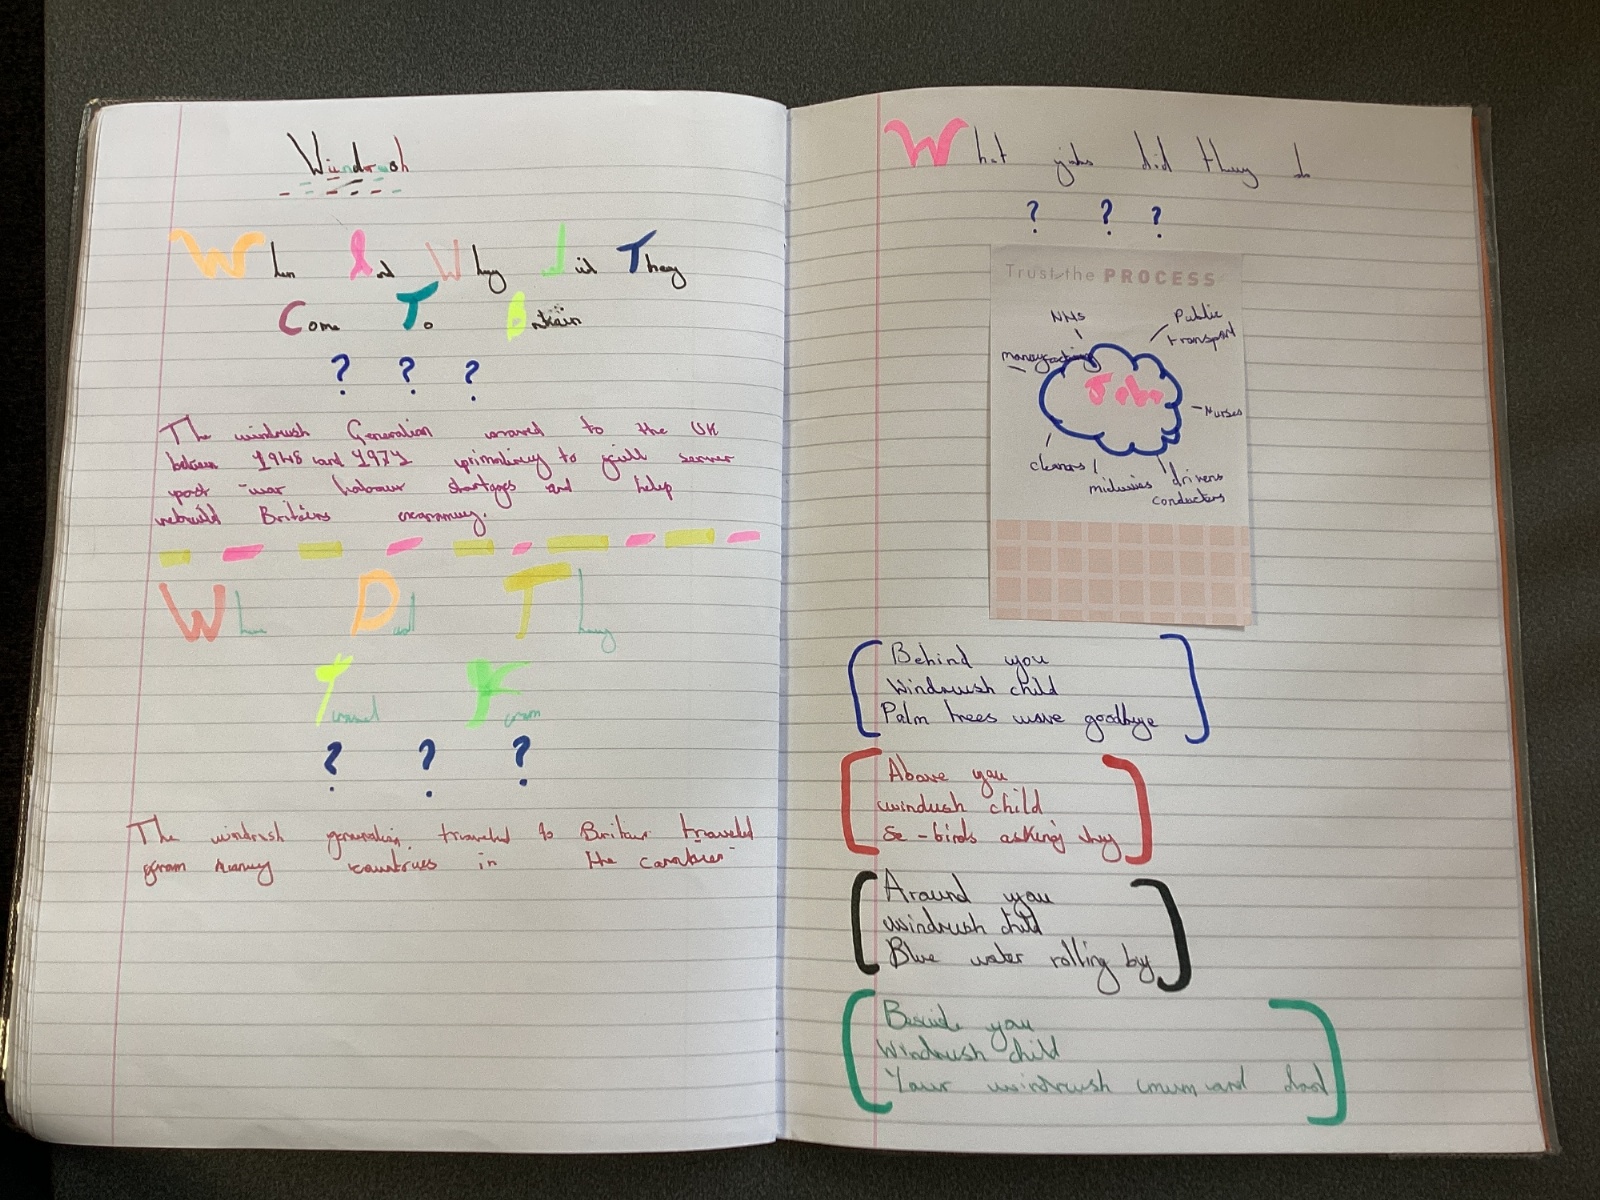 Windrush
When And Why did They
Come To Britain
? ? ?
The windrush Generation to the UK
1948 and 1971 to fill
post-war labour and help
rebuild Britains
W Did They
Travel From
? ? ?
The windrush traveled to traveled
from many countries in the
What jobs did they do
? ? ?
Trust the PROCESS
NHS
Public
transport
Jobs
Nurses
cleaners
midwives
drivers
conductors
Behind you
Windrush child
Palm trees wave goodbye
Above you
windush child
Se-birds asking why
Around you
windrush child
Blue water rolling by
Beside you
Windrush child
Your windrush mum and dad